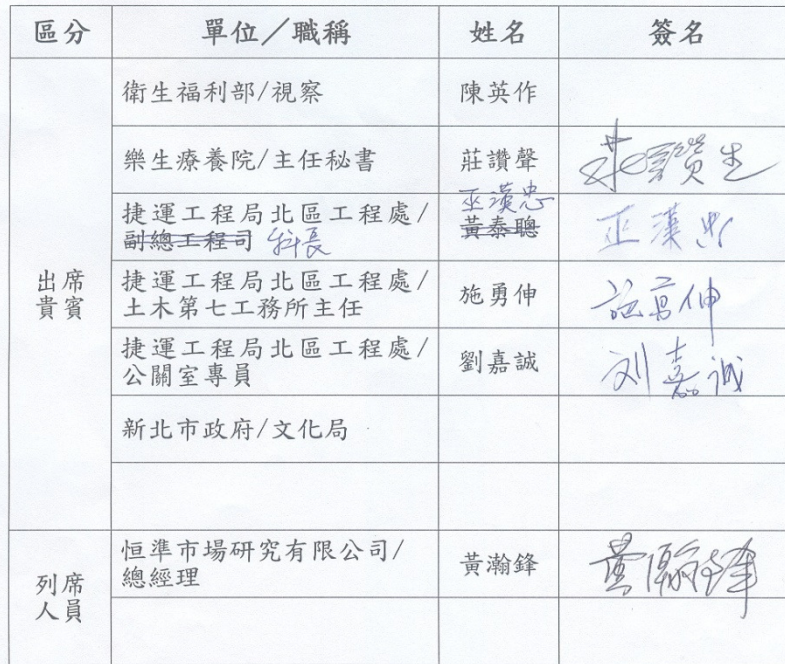 區分 單位／職稱 姓名 簽名
衛生福利部/視察 陳英作
樂生療養院/主任秘書 莊讚聲 莊讚生
巫漢忠
捷運工程局北區工程處/ 黃泰聰 巫漢忠
副總工程司 科長
出席
貴賓
捷運工程局北區工程處/
土木第七工務所主任 施勇伸 施勇伸
捷運工程局北區工程處/
公關室專員 劉嘉誠 刘嘉诚
新北市政府/文化局
列席
人員
恒準市場研究有限公司/
總經理 黃瀚鋒 黃瀚鋒